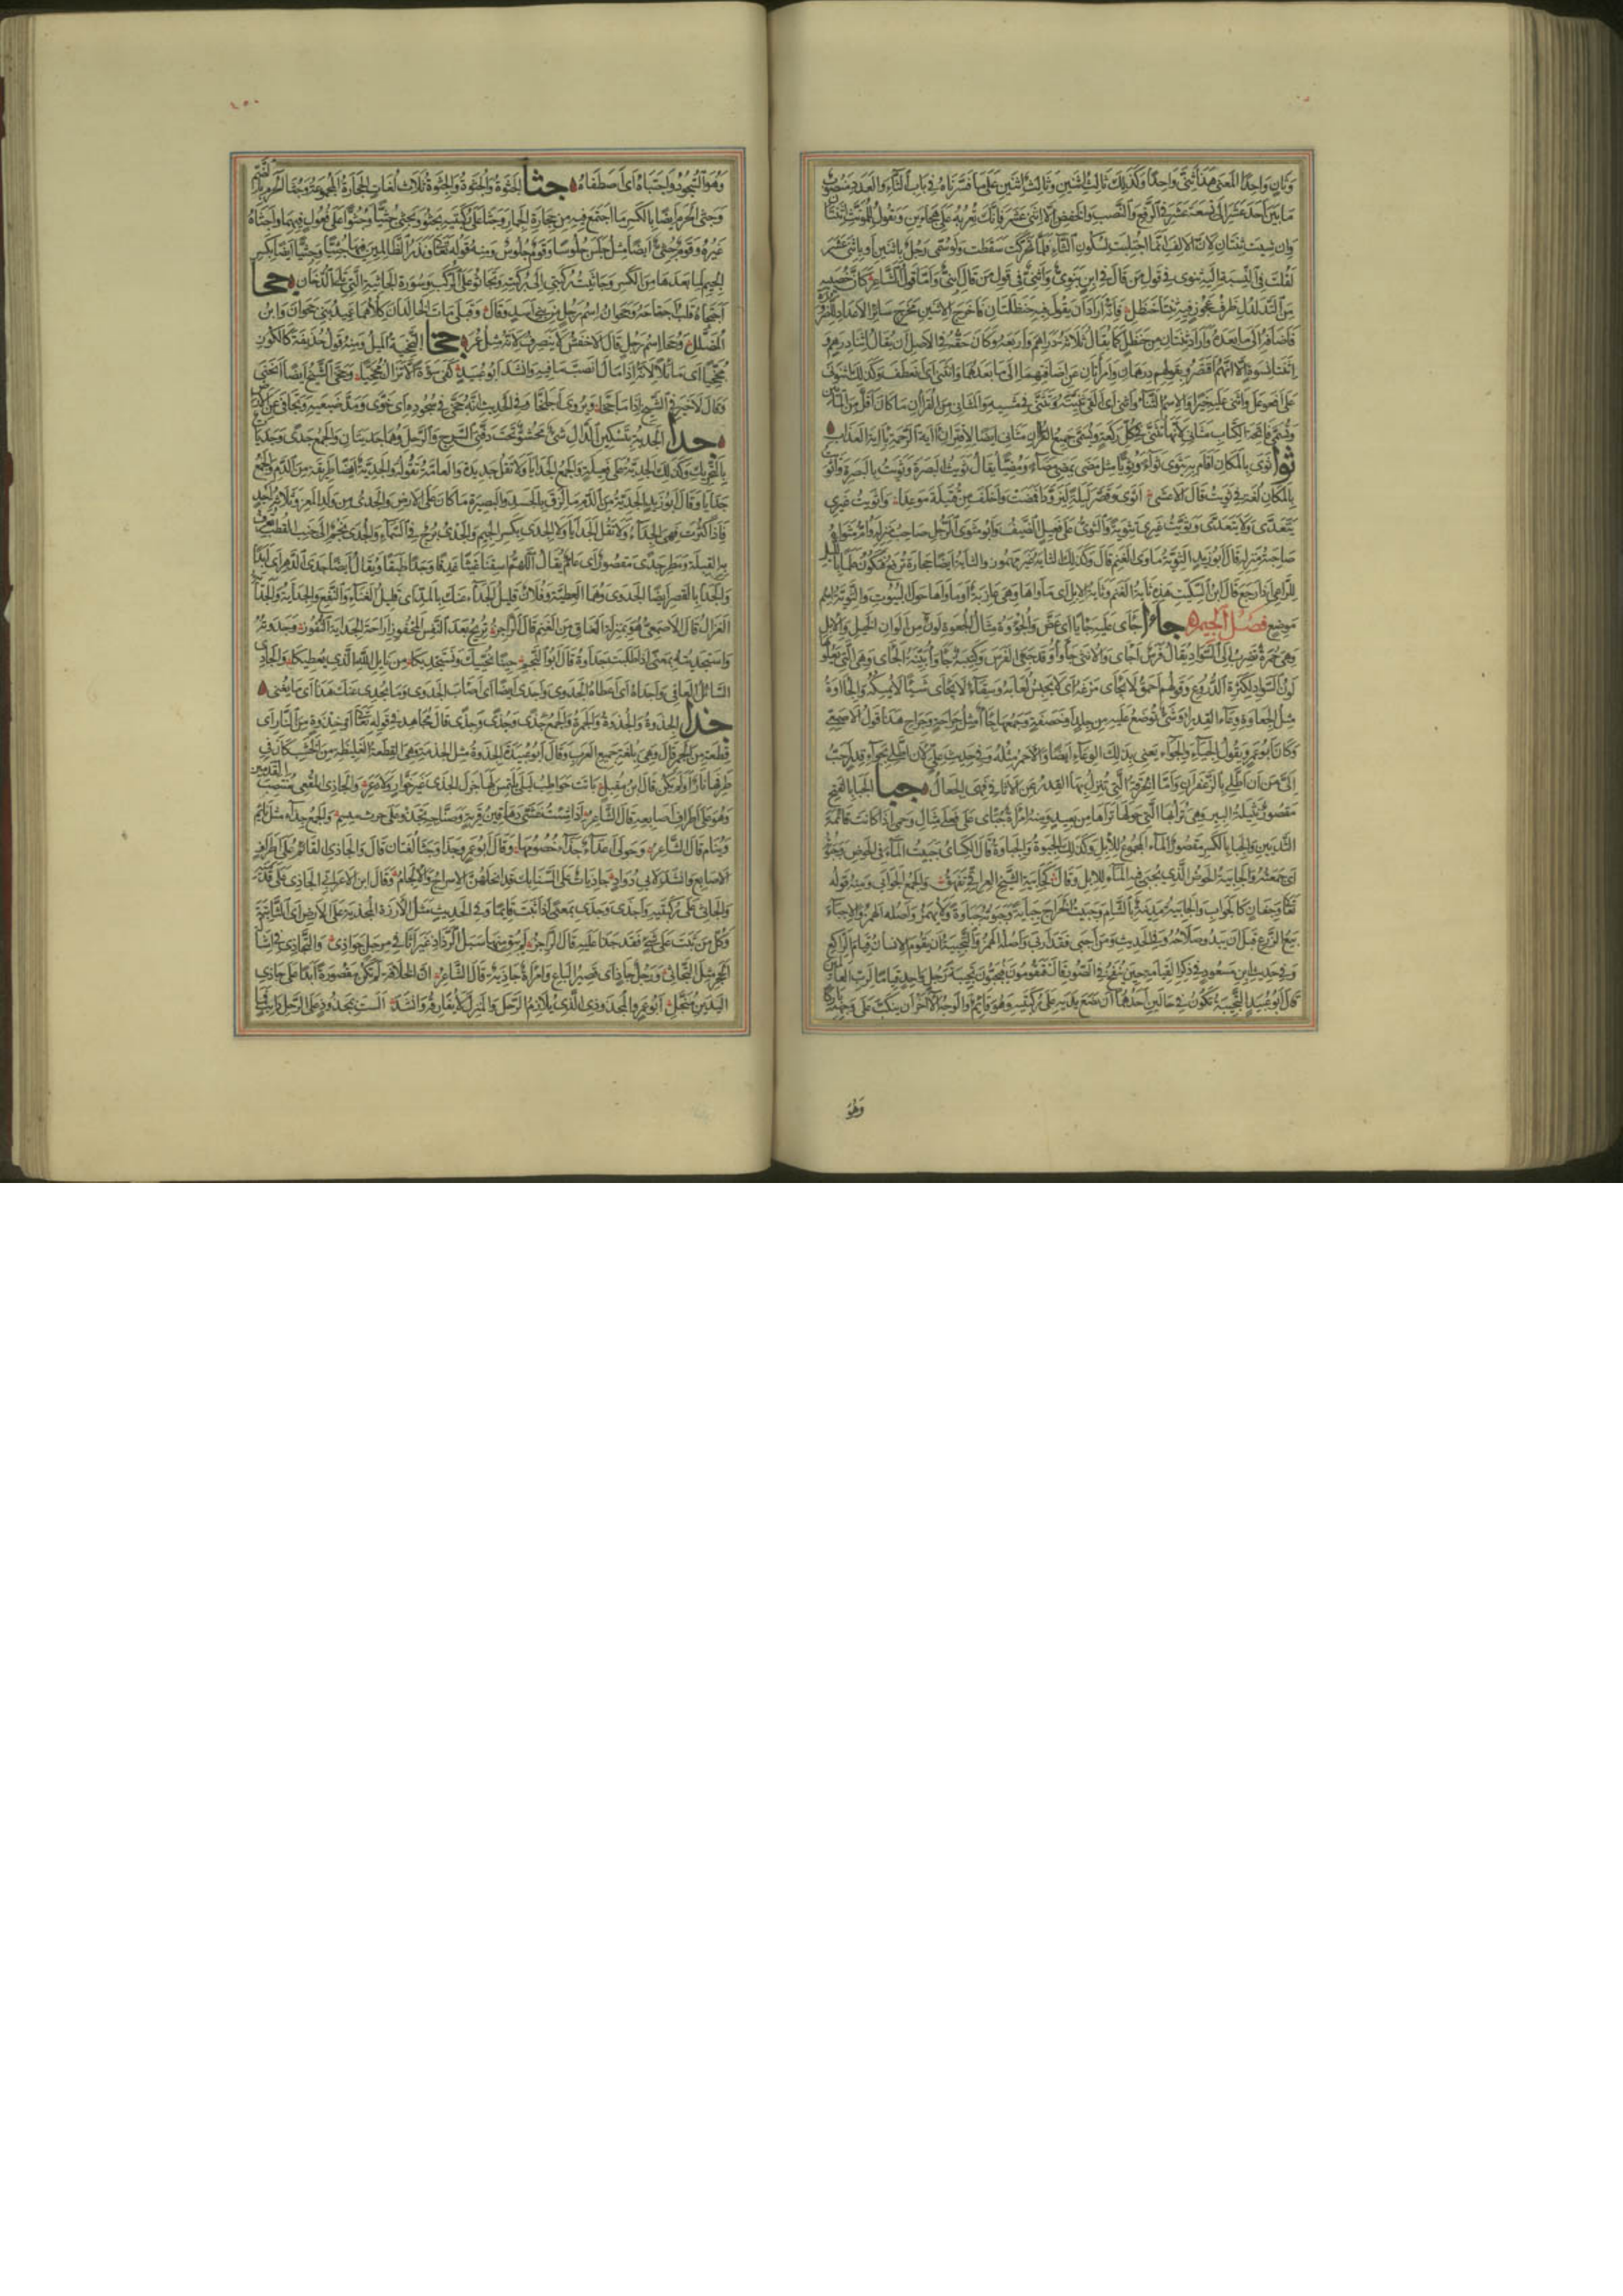 وثان واحدا المعنى هذا ثنى واحدا وكذلك ثالث اثنين وثالث اثنين على ما فسرناه في باب الثاء والعدد منصوب
ما بين أحد عشر إلى تسعة عشر في الرفع والنصب والخفض إلا اثنى عشر فإنك تعربه على هجاءين وتقول للمؤنث اثنتان
وإن شئت ثنتان لأن الألف إنما اجتلبت لسكون الثاء فلما تحركت سقطت ولو سمى رجل باثنين أو باثنى عشر
لقلت في النسبة إليه ثنوي في قول من قال في ابن بنوي واثني في قول من قال ابني وأما قول الشاعر كأن خصييه
من التدلدل ظرف عجوز فيه ثنتا حنظل فإنه أراد أن يقول فيه حنظلتان فأخرج الاثنين مخرج سائر الأعداد للضرورة
فأضافه إلى ما بعده وأراد ثنتان من حنظل كما يقال ثلاثة دراهم وأربعة وكان حقه في الأصل أن يقال اثنا دراهم و
اثنتا نسوة إلا أنهم اقتصروا بقولهم درهمان وامرأتان عن إضافتهما إلى ما بعدهما وانثنى أي انعطف وكذلك اثنونى
على افعوعل وأثنى عليه خيرا والاسم الثناء وأثنى أي ألقى ثنيته وتثنى في مشيه والمثاني من القرآن ما كان أقل من المائتين
وتسمى فاتحة الكتاب مثاني لأنها تثنى في كل ركعة ويسمى جميع القرآن مثاني أيضا لاقتران آية الرحمة بآية العذاب
ثوا ثوى بالمكان أقام به يثوي ثواء وثويا مثل مضى يمضي مضاء ومضيا يقال ثويت البصرة وثويت بالبصرة وأثويت
بالمكان لغة في ثويت قال الأعشى أثوى وقصر ليلة ليزودا فمضت وأخلف من قتيلة موعدا وأثويت غيري
يتعدى ولا يتعدى وثويت غيري تثوية والثوي على فعيل الضيف وأبو مثوى الرجل صاحب منزله وأم مثواه
صاحبة منزله قال أبو زيد الثوية مأوى الغنم قال وكذلك الثاية غير مهموز والثاية أيضا حجارة ترفع فتكون علما بالليل
للراعي إذا رجع قال ابن السكيت هذه ثاية الغنم وثاية الإبل أي مأواها وهي عازبة أو مأواها حول البيوت والثوية اسم
موضع فصل الجيم جاءا جأى عليه جأيا أي عض والجؤوة مثال الجعوة لون من ألوان الخيل والإبل
وهي حمرة تضرب إلى السواد يقال فرس أجأى والأنثى جأواء وقد جئي الفرس وكتيبة جأواء بينة الجأى وهي التي يعلوها
لون السواد لكثرة الدروع وقولهم أحمق لا يجأى مرغه أي لا يحبس لعابه وسقاء لا يجأى شيئا لا يمسكه والجئاوة
مثل الجعاوة وعاء القدر أو شيء توضع عليه من جلد أو خصفة وجمعها جئاء مثل جراحة وجراح هذا قول الأصمعي
وكان أبو عمرو يقول الجياء والجواء يعني بذلك الوعاء أيضا والأحمر مثله وفي حديث علي لأن أطلي بجواء قدر أحب
إلي من أن أطلي بالزعفران وأما الخرقة التي تنزل بها القدر عن الأثافي فهي الجعال جبا الجبا بالفتح
مقصور نثيلة البئر وهي ترابها الذي حولها تراها من بعيد ومنه امرأة جبأى على فعلى مثال وحمى إذا كانت قائمة
الثديين والجبا بالكسر مقصور الماء المجموع للإبل وكذلك الجبوة والجباوة قال الكسائي جبيت الماء في الحوض وجبوته
أي جمعته والجابية الحوض الذي يجبى فيه الماء للإبل وقال كجابية الشيخ العراقي تفهق والجمع الجوابي ومنه قوله
تعالى وجفان كالجواب والجابية مدينة بالشام وجبيت الخراج جباية وجبوته جباوة ولا يهمز وأصله الهمز والإجباء
بيع الزرع قبل أن يبدو صلاحه وفي الحديث ومن أجبى فقد أربى وأصله الهمز والتجبية أن يقوم الإنسان قيام الراكع
وفي حديث ابن مسعود في ذكر القيامة حين ينفخ في الصور قال فيقومون فيجبون تجبية رجل واحد قياما لرب العالمين
قال أبو عبيد التجبية تكون في حالين أحدهما أن تضع يديه على ركبتيه وهو قائم والوجه الآخر أن ينكب على وجهه باركا
وهو
وهو السجود واجتباه أي اصطفاه جثا الجثوة والجثوة والجثوة ثلاث لغات الحجارة المجموعة وجثا الحرم بالضم
وجثى الحرم أيضا بالكسر ما اجتمع فيه من حجارة الجمار وجثا على ركبتيه يجثو ويجثي جثيا وجثوا على فعول فيهما وأجثاه
غيره وقوم جثي أيضا مثل جلس جلوسا وقوم جلوس ومنه قوله تعالى ونذر الظالمين فيها جثيا وجثيا أيضا بكسر
الجيم لما بعدها من الكسر وجاثيته ركبتي إلى ركبته وتجاثوا على الركب وسورة الجاثية التي تلي الدخان جحا
اجتحاه قلب اجتاحه وجحوان اسم رجل من بني أسد وقال وقبلي مات الخالدان كلاهما عميد بني جحوان وابن
المضلل وجحا اسم رجل قال الأخفش لا ينصرف لأنه مثل عمر جخا التجخية الميل ومنه قول حذيفة كالكوز
مجخيا أي مائلا لأنه إذا مال انصب ما فيه وأنشد أبو عبيد كفى سوءة ألا تزال مجخيا وجخى الشيخ أيضا انحنى
وقال الآخر لا خير في الشيخ إذا ما جخا ويروى اجلخا وفي الحديث أنه جخى في سجوده أي خوى ومد ضبعيه وتجافى عن الأرض
جدا الجدية بتسكين الدال شيء محشو تحت دفتي السرج والرحل وهما جديتان والجمع جدى وجديات
بالتحريك وكذلك الجدية على فعيلة والجمع الجدايا ولا تقل جديدة والعامة تقوله والجدية أيضا طريقة من الدم والجمع
جدايا وقال أبو زيد الجدية من الدم ما لزق بالجسد والبصيرة ما كان على الأرض والجدي من ولد المعز وثلاثة أجد
فإذا كثرت فهي الجداء ولا تقل الجدايا ولا الجدى بكسر الجيم والجدي برج في السماء والجدي نجم إلى جنب القطب تعرف
به القبلة ومطر جدى مقصور أي عام يقال اللهم اسقنا غيثا غدقا وجدا طبقا ويقال أيضا جدا الدهر أي أبدا
والجدا بالقصر أيضا الجدوى وهما العطية وفلان قليل الجداء عنك بالمد أي قليل الغناء والنفع والجداية والجداية
الغزال قال الأصمعي هو بمنزلة العناق من الغنم قال الراجز تريح بعد النفس المحفوز إراحة الجداية النفوز وجدوته
واجتديته واستجديته بمعنى إذا طلبت جدواه قال أبو النجم جئنا نحييك ونستجديكا من نائل الله الذي يعطيكا والجادي
السائل العافي وأجداه أي أعطاه الجدوى وأجدى أيضا أي أصاب الجدوى وما يجدي عنك هذا أي ما يغني
جذا الجذوة والجذوة والجذوة الجمرة والجمع جذى وجذى وجذى قال مجاهد في قوله تعالى أو جذوة من النار أي
قطعة من الجمر قال وهي بلغة جميع العرب وقال أبو عبيدة الجذوة مثل الجذمة وهي القطعة الغليظة من الخشب كان في
طرفها نار أو لم يكن قال ابن مقبل باتت حواطب ليلى يلتمسن لها جزل الجذى غير خوار ولا دعر والجاذي المقعي منتصب القدمين
وهو على أطراف أصابعه قال الشاعر إذا شئت غنتني دهاقين قرية وصناجة تجذو على حرف منسم والجمع جذاء مثل نائم
ونيام قال الشاعر وحولي أعداء جذاء خصومها وقال أبو عمرو جذا وجثا لغتان قال والجاذي القائم على أطراف
الأصابع وأنشد لأبي دؤاد جاذيات على السنابك قد أنحلهن الإسراج والإلجام وقال ابن الأعرابي الجاذي على قدميه
والجاثي على ركبتيه وأجذى وجذى بمعنى إذا ثبت قائما وفي الحديث مثل الأرزة المجذية على الأرض أي الثابتة
وكل من ثبت على شيء فقد جذا عليه قال الراجز لم يبق منها سبل الرذاذ غير أثافي مرجل جواذي والتجاذي في إشالة
الحجر مثل التجاثي ورجل جاذ أي قصير الباع وامرأة جاذية قال الشاعر إن الخلافة لم تكن مقصورة أبدا على جاذي
اليدين مبخل أبو عمرو المجذوذي الذي يلازم الرحل والمنزل لا يفارقه وأنشد ألست بمجذوذ على الرحل راتب فما